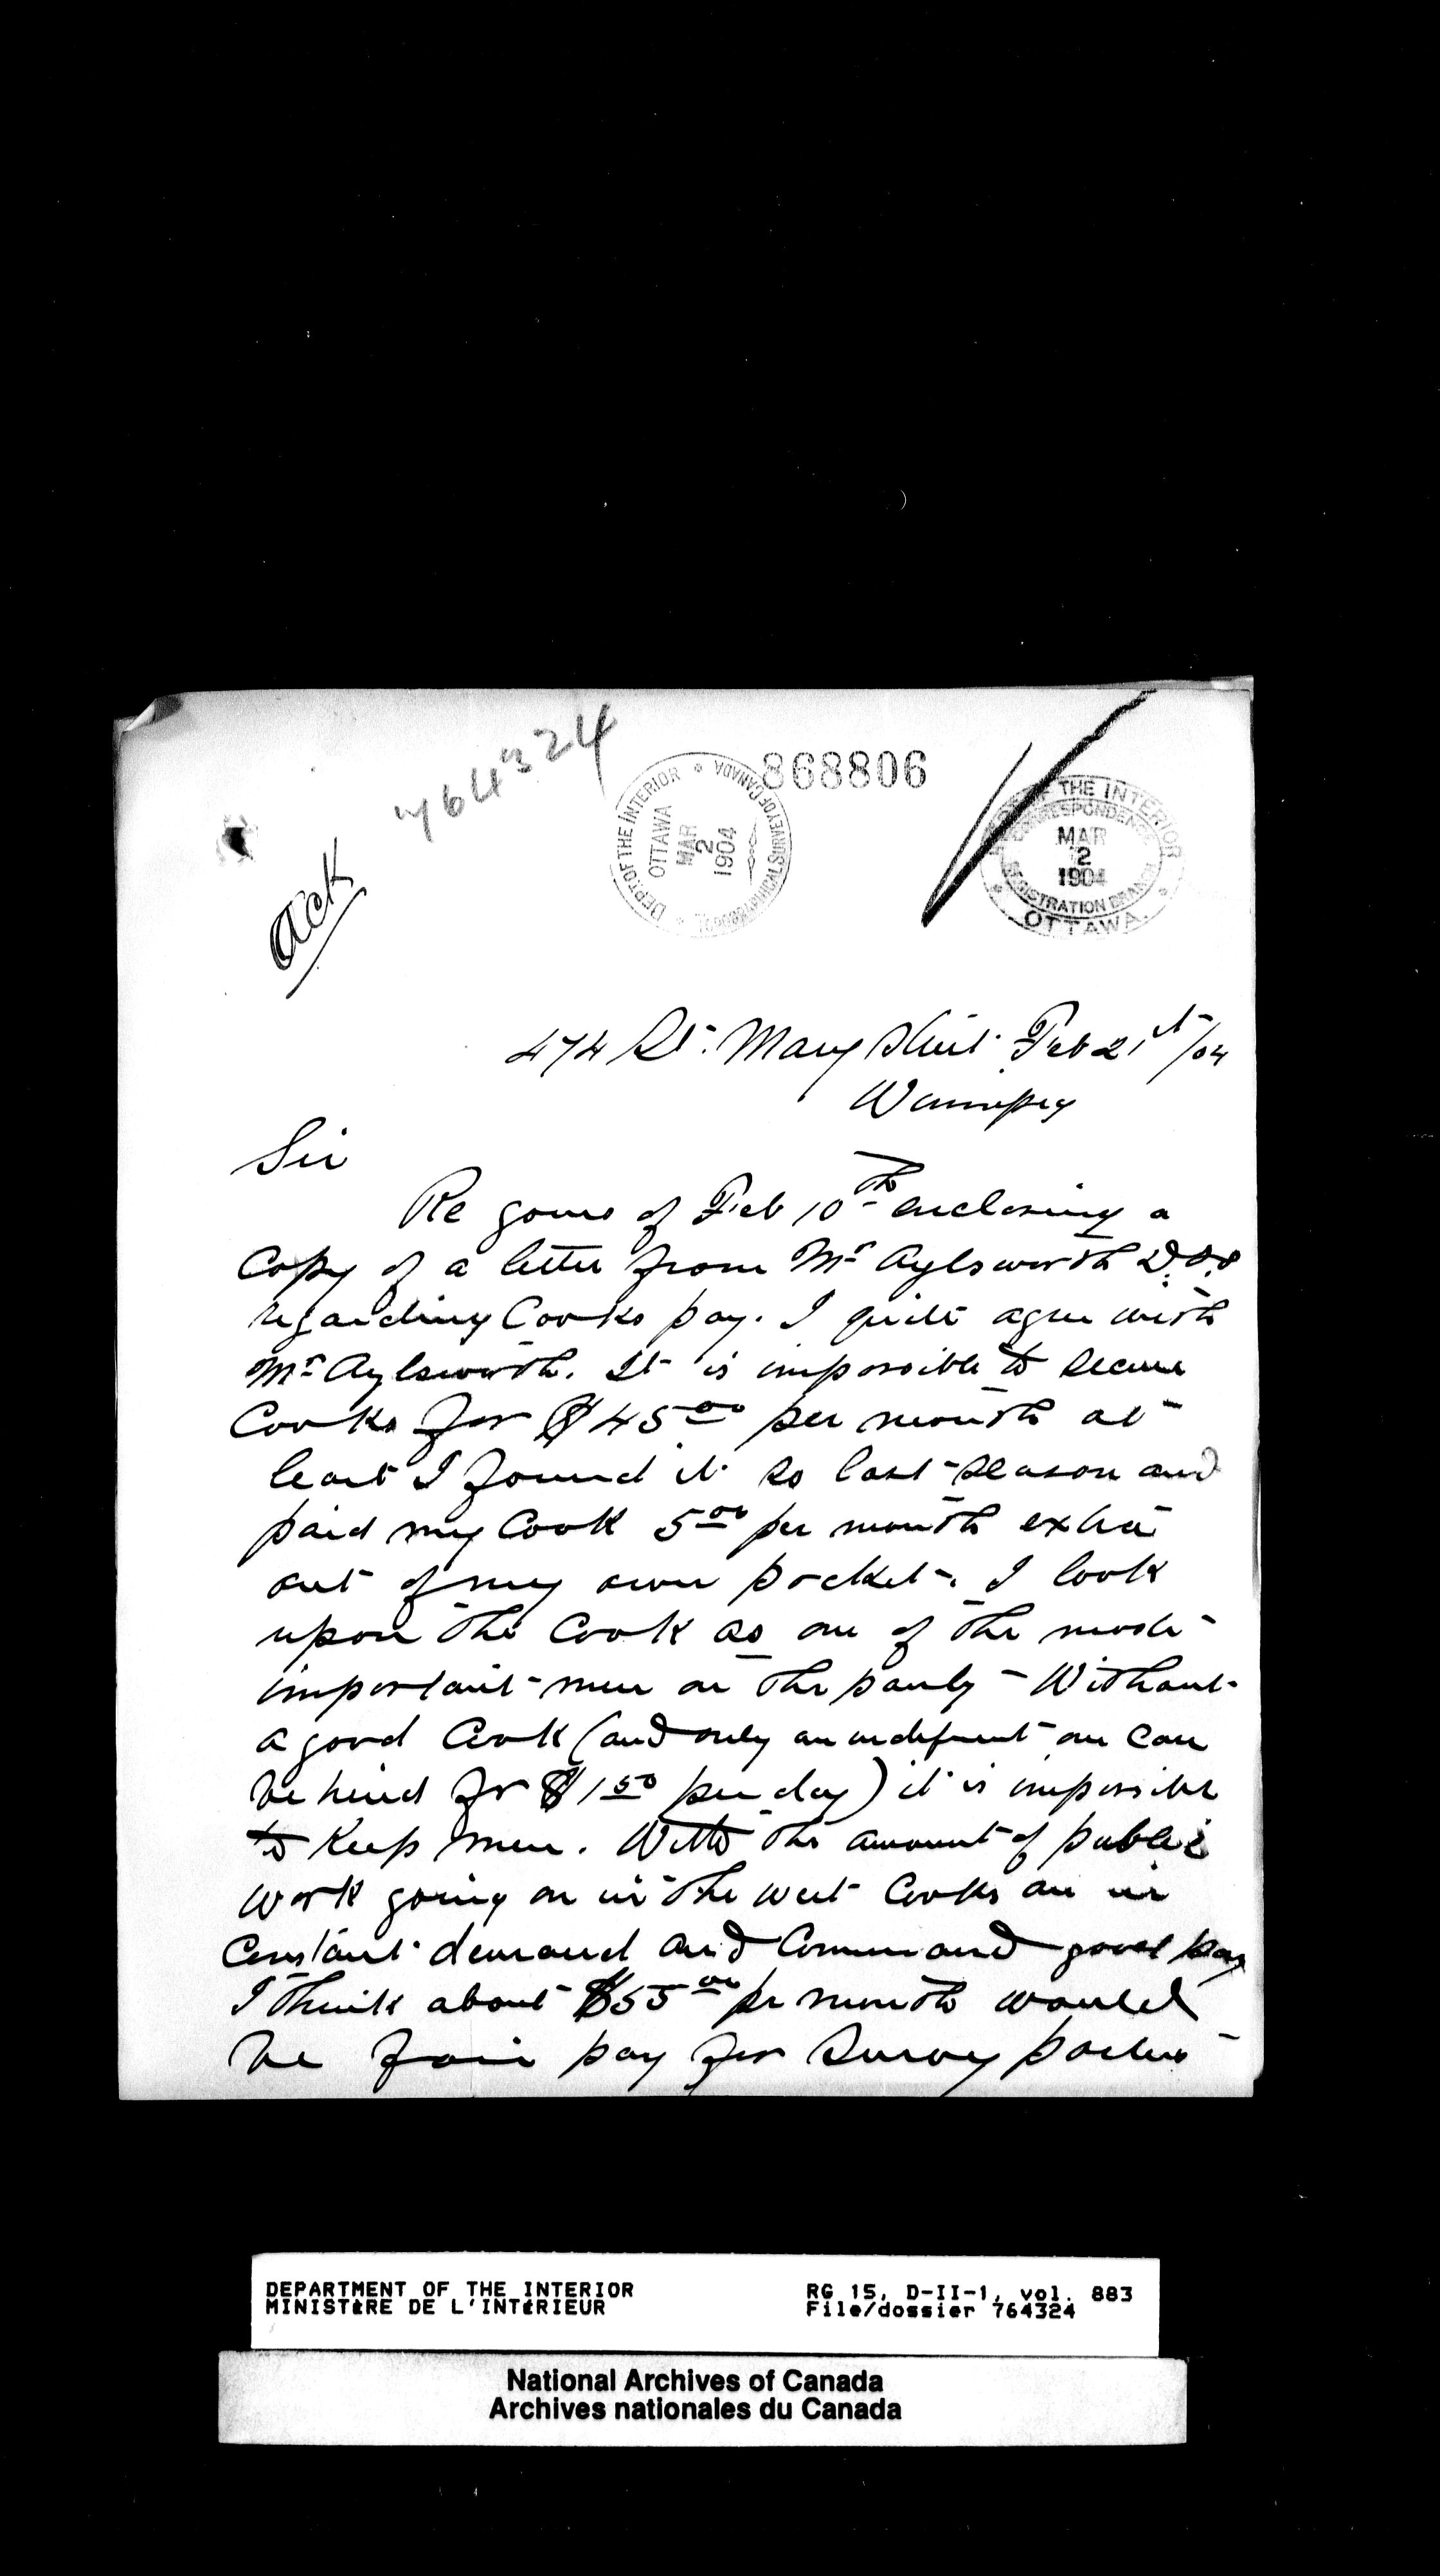 764324
868806
DEPT. OF THE INTERIOR
OTTAWA
MAR
2
1904
TOPOGRAPHICAL SURVEY OF CANADA
DEPT. OF THE INTERIOR
CORRESPONDENCE
MAR
2
1904
REGISTRATION BRANCH
OTTAWA.
Ack
474 St. Mary Street Feb 21st/04
Winnipeg
Sir
Re yours of Feb 10th enclosing a
Copy of a letter from Mr Aylsworth D.L.S
regarding Cooks pay. I quite agree with
Mr Aylsworth. It is impossible to secure
Cooks for $45.00 per month at
least I found it so last season and
paid my Cook 5.00 per month extra
out of my own pocket. I look
upon the Cook as one of the most
important men on the party - Without
a good Cook (and only an indifferent one can
be hired for $1.50 per day) it is impossible
to keep men. With the amount of public
work going on in the west Cooks are in
Constant demand and Command good pay
I think about $55.00 per month would
be fair pay for Survey parties
DEPARTMENT OF THE INTERIOR
MINISTÈRE DE L'INTÉRIEUR
RG 15, D-II-1, vol. 883
File/dossier 764324
National Archives of Canada
Archives nationales du Canada